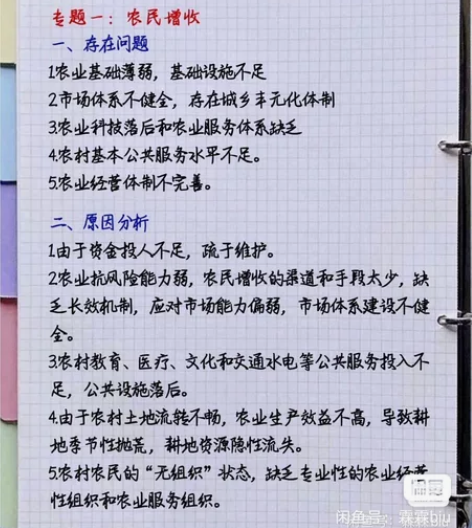 专题一：农民增收
一、存在问题
1农业基础薄弱，基础设施不足
2市场体系不健全，存在城乡丰元化体制
3.农业科技落后和农业服务体系缺乏
4.农村基本公共服务水平不足。
5.农业经营体制不完善。
二、原因分析
1.由于资金投人不足，疏于维护。
2.农业抗风险能力弱，农民增收的渠道和手段太少，缺
乏长效机制，应对市场能力偏弱，市场体系建设不健
全。
3.农村教育、医疗、文化和交通水电等公共服务投入不
足，公共设施落后。
4.由于农村土地流转不畅，农业生产效益不高，导致耕
地季节性抛荒，耕地资源隐性流失。
5.农村农民的“无组织”状态，缺乏专业性的农业经营
性组织和农业服务组织。
闲鱼号：霖霖biu